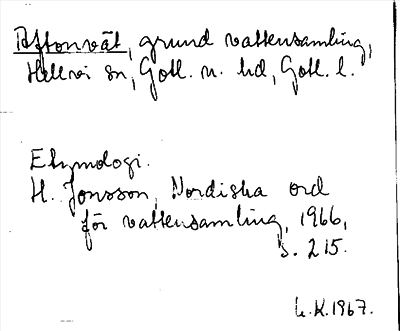 Aftonvät, grund vattensamling,
Hellvi sn, Gotl. n. hd, Gotl. l.
Etymologi.
H. Jonsson, Nordiska ord
för vattensamling, 1966,
s. 215.
L.K.1967.